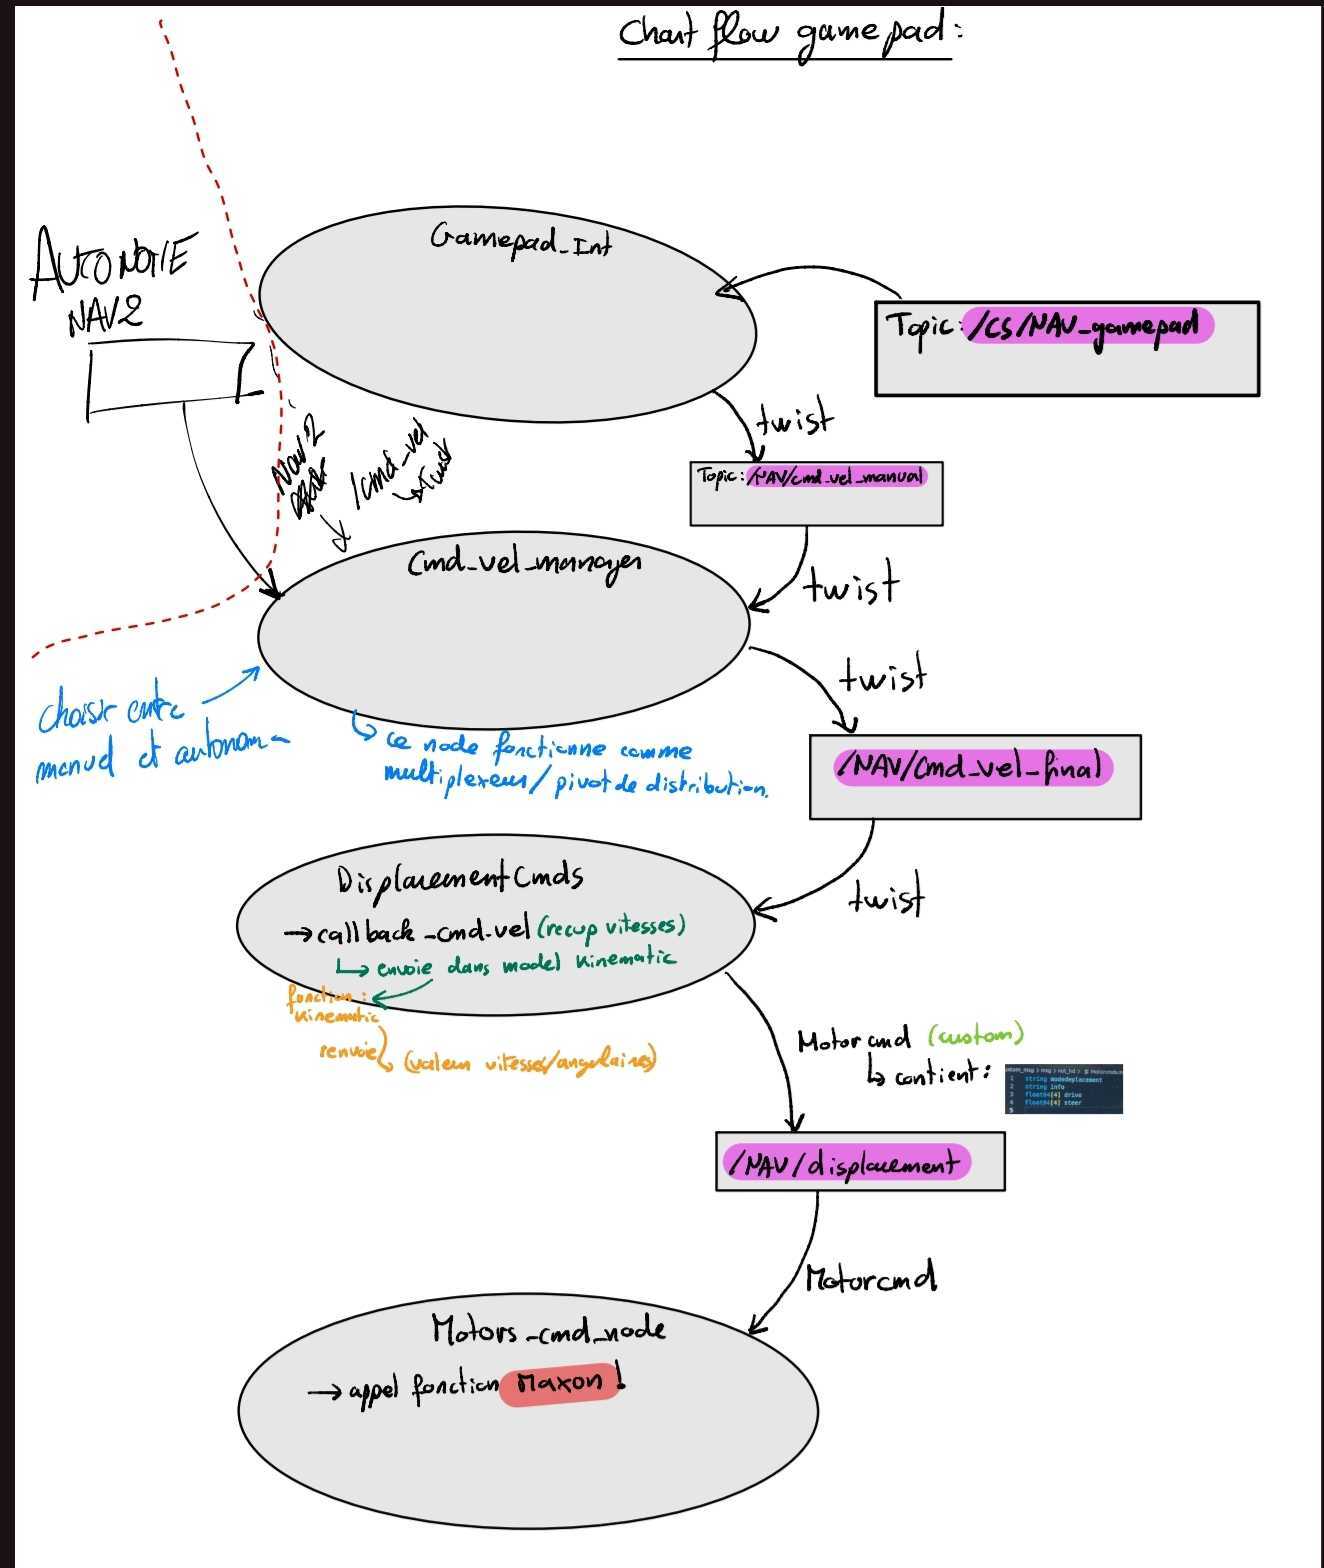 Chart flow gamepad :
Gamepad_Int
AUTONOMIE
NAV2
Topic: /CS/NAV_gamepad
twist
Topic: /NAV/cmd_vel_manual
Nav2
/cmd_vel
↳ Twist
Cmd_vel_manager
twist
twist
choisir entre
manuel et autonom
↳ ce node fonctionne comme
multiplexeur / pivot de distribution.
/NAV/Cmd_vel_final
twist
DisplacementCmds
→ callback_cmd_vel (recup vitesses)
↳ envoie dans model kinematic
fonction :
kinematic
renvoie
(valeur vitesses/angulaires)
Motorcmd (custom)
↳ contient :
1 string modedeplacement
2 string info
3 float64[4] drive
4 float64[4] steer
5
/NAV/displacement
Motorcmd
Motors_cmd_node
→ appel fonction Maxon !